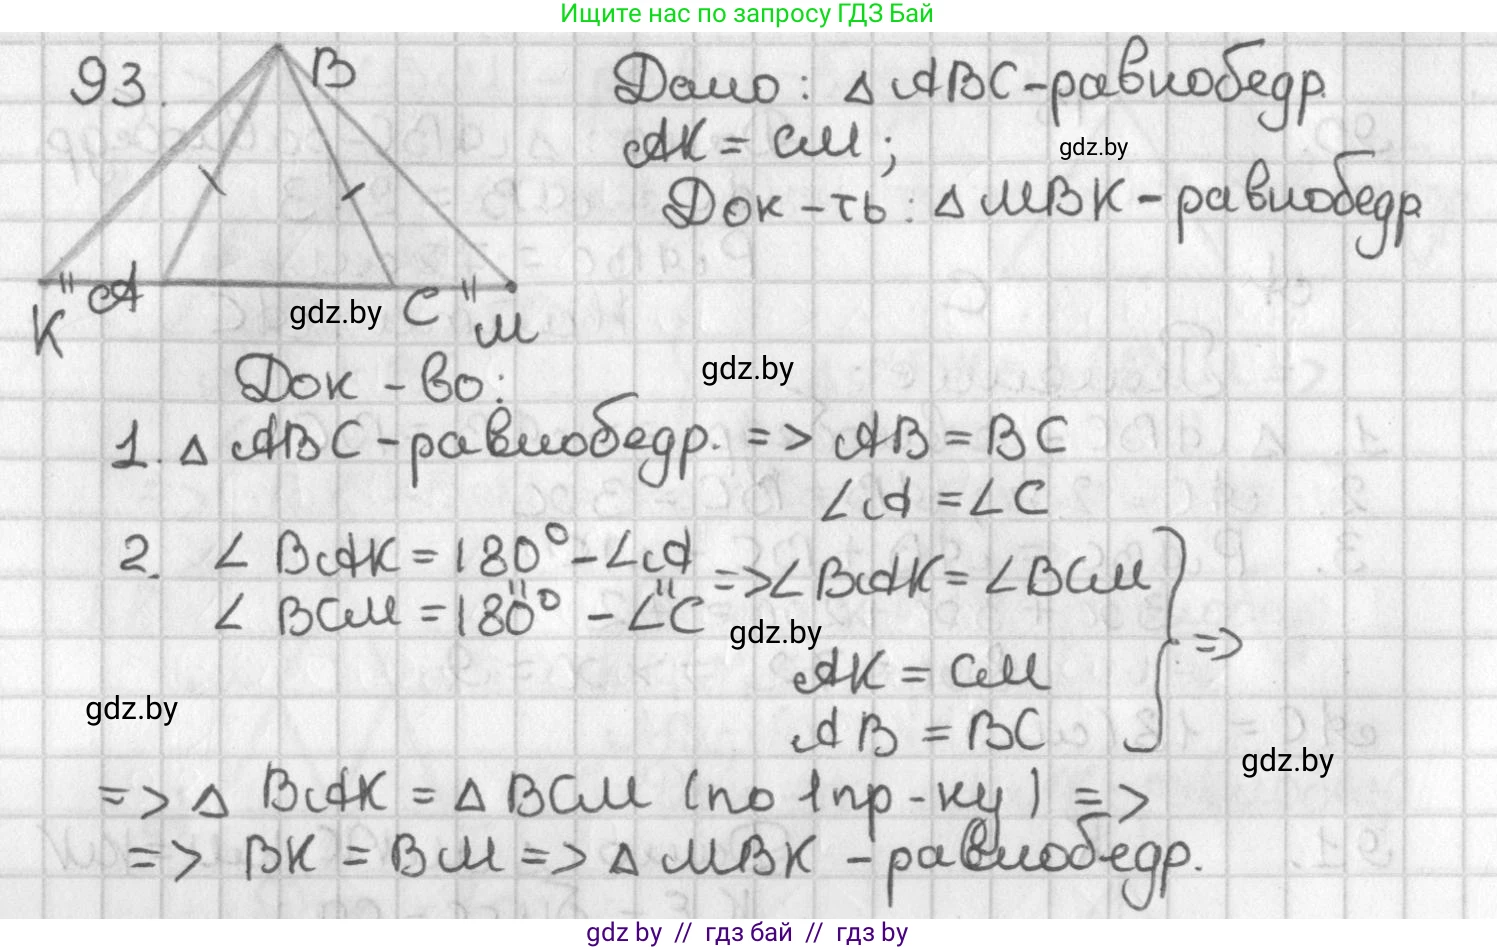 Ищите нас по запросу ГДЗ Бай
93.
B
Дано: △ ABC - равнобедр.
AK = CM;
gdz.by
Док-ть: △ MBK - равнобедр.
K " A C " M
gdz.by
Док-во:
gdz.by
1. △ ABC - равнобедр. => AB = BC
∠A = ∠C
2. ∠ BAK = 180° - ∠A
" "
∠ BCM = 180° - ∠C
=> ∠BAK = ∠BCM
gdz.by
AK = CM
=>
gdz.by
AB = BC
gdz.by
=> △ BAK = △ BCM (по 1 пр-ку) =>
=> BK = BM => △ MBK - равнобедр.
gdz by // гдз бай // гдз by